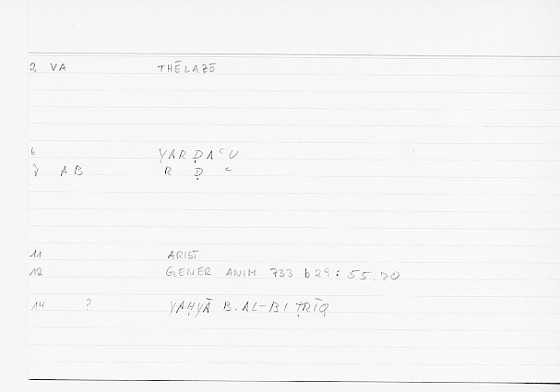 2 VA THĒLAZŌ
6 YARḌAʿU
8 AB R Ḍ ʿ
11 ARIST
12 GENER ANIM 733 b29: 55.20
14 ? YAḤYĀ B. AL-BIṬRĪQ